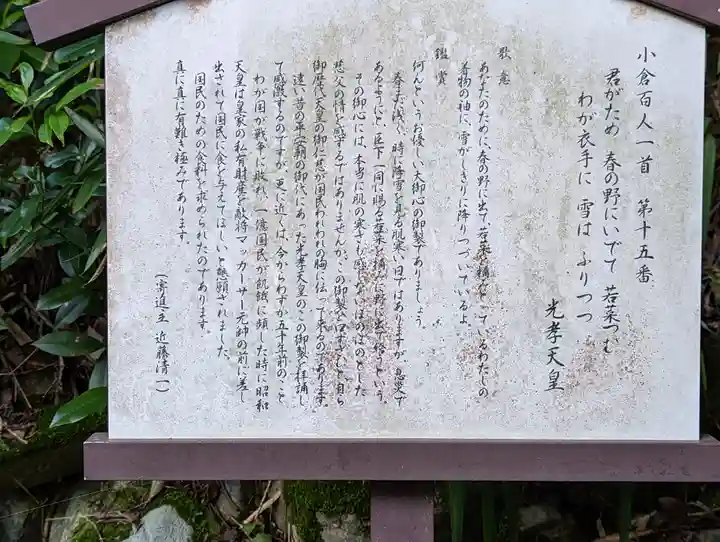 小倉百人一首 第十五番
君がため 春の野にいでて 若菜つむ
わが衣手に 雪は ふりつつ
光孝天皇
歌意
あなたのために、春の野に出て、若菜を摘んでいるわたしの
着物の袖に、雪がしきりに降りつづいているよ。
鑑賞
何んというお優しい大御心の御製でありましょう。
春まだ浅く、時に降雪を見る肌寒い日ではありますが、息災で
あるようにと、臣下一同に賜る若菜を摘みに野に出で給うという、
その御心には、本当に肌の寒さも感じないほのぼのとした
慈父の情を感ずるではありませんか。この御製を口ずさむと、自ら
御歴代天皇の御仁慈が国民われわれの胸に伝って来るのであります。
遠い昔の平安朝の御代にあった光孝天皇のこの御製を拝誦し
て感激するのですが、更に近くは、今からわずか五十年前のこと
わが国が戦争に敗れ、一億国民が飢餓に頻した時に昭和
天皇は皇家の私有財産を敵将マッカーサー元帥の前に差し
出されて国民に食を与えてほしいと懇願されました。
国民のための食料を求められたのであります。
真に真に有難き極みであります。
(寄進主 近藤清一)